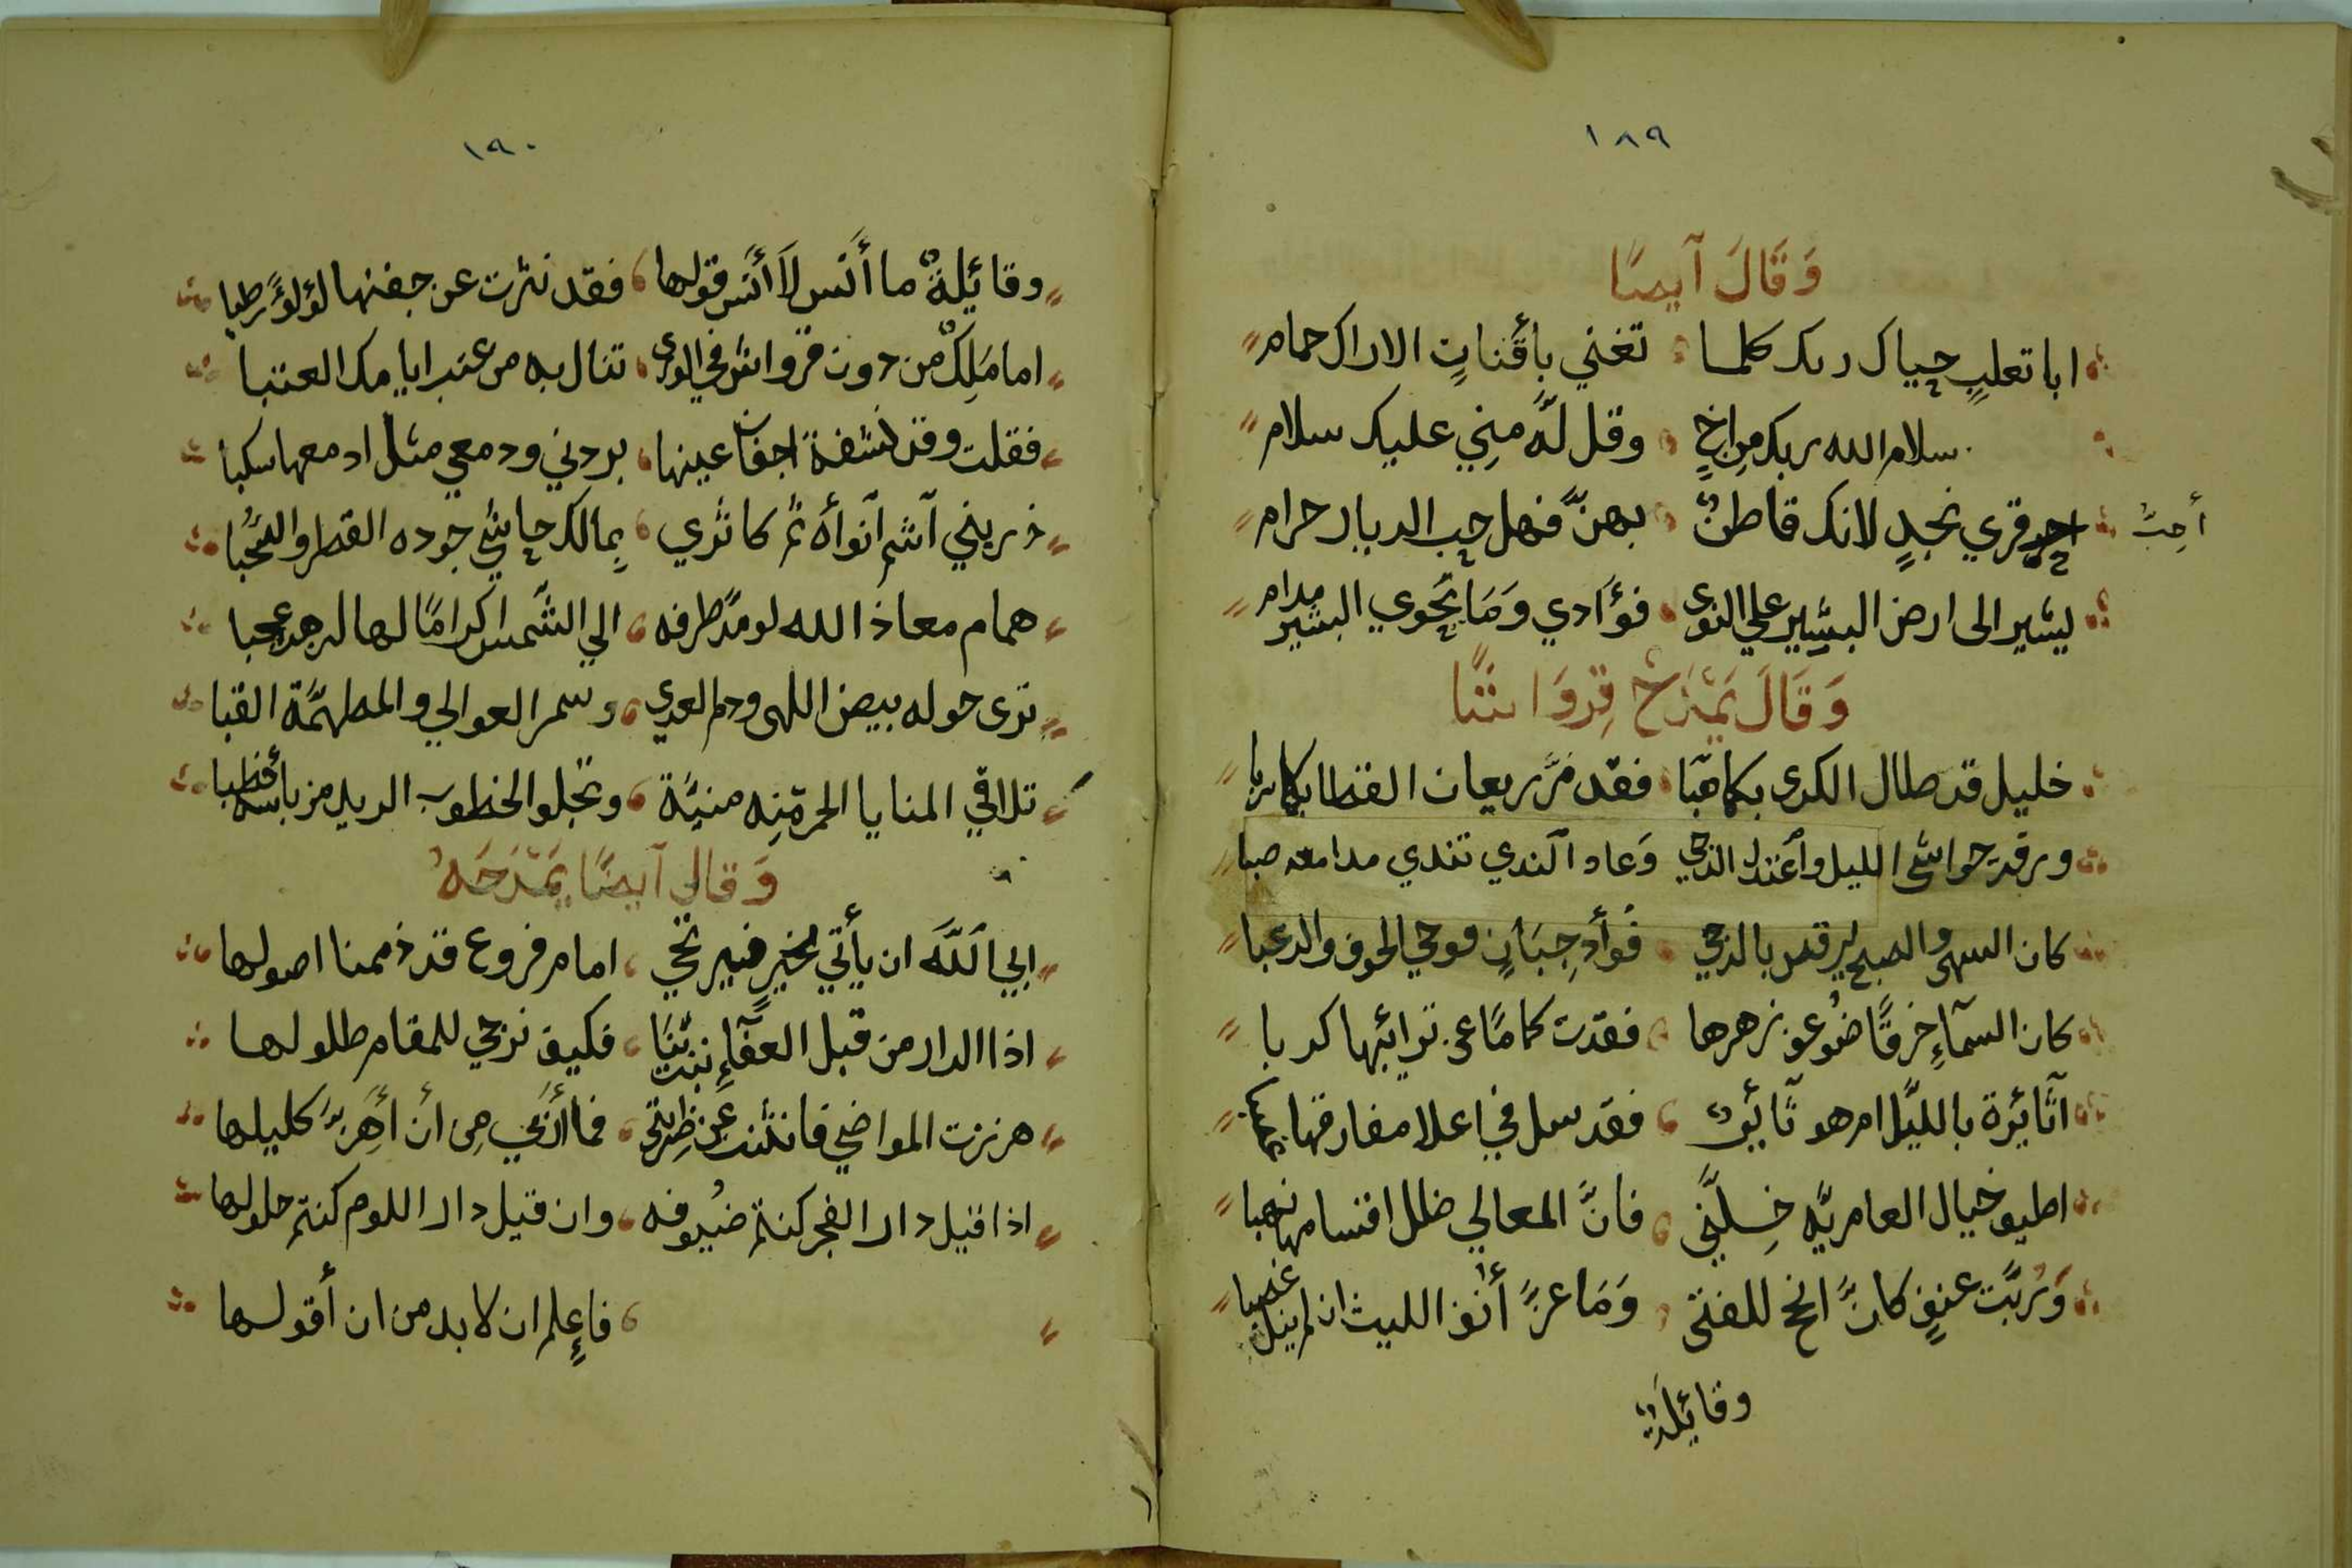 ١٨٩
وَقَالَ آيضًا
ابا تعلبٍ حياك ربك كلما تغني بأقناتٍ الاراك حمام
سلام الله ربك من اخٍ وقل لَهُ مِنِي عليك سلام
احب قري نجدٍ لانك قاطنٌ بهنَّ فهل حب الديار حرام
أحِبُّ
يشير الى ارض البشير علي النوى فؤَادي وَمَا يَحوي البشير مرام
وَقَالَ يَمْدَحْ قِروَاشًا
خليل قد طال الكرى بكما هبَّا فقد مَرَّ ريعان القطا بكما سربا
ورقت حواشى الليل وأعتدل الدجي وَعاد الندي تندي مدامعه صبا
كان السهى والصبح يرقد بالدجي فُوأد جِبَانٍ موحي الخوف والرعبا
كان السمآءِ خرقًا ضُوعف زهرها فقدت كمامًا عن ترائبها كربا
آثَائرة بالليَّل ام هو ثَآئرٌ فقد سل في اعلا مفارقها
اطيف خيال العامريَّه خِلَّني فانَّ المعالي ظلل اقتسامها نهبا
وَرُبَّت عنفٍ كانَّ انجح للفتى وَمَا عزَّ أنف الليث ان لم ينل غضبا
وقائيلةٌ
١٩٠
وقائيلةٌ ما أَنَس لاَ أَنَس قولها فقد نثرت عن جفنها لؤلؤً رطبا
اما مَلِكٌ من دون قرواش في الورى تنال به من عتب ايامك العتبا
فقلت وقد نشفة اجفان عينها بردني ودمعي مثل ادمعها سكبا
ذريني آشم آنوأه ثُم كاثري بمالك حاشي جوده القطر والسُحُبا
همام معاذ الله لو مدَّ طرفه الي الشَّمس اكرامًا لها لم جد عجبا
ترى حوله بيض اللهى ودم العدى وسمر العوالي والمطهمَّة القبا
تلاقي المنايا الحمر مِنه منيَّة وتجلو الخطوب الربد من بأسه خطبا
وَقال آيضًا يَمْدَحَهُ
ابي اللَّه ان يأتي بخيرٍ فيرتجي امام فروع قد ذممنا اصولها
اذا الدار من قبل العفآءِ نبت بَّنَا فكيف نرجي للمقام طلولها
هززت المواضي فانثنت عَن ضريبتى فما أنكي مِى أن أَهِزَّ كليلها
اذا قيل دار الفجر كنتم ضُيوفه وان قيل دار اللوم كنتم حلولها
فاعِلم ان لابد من ان أقولها